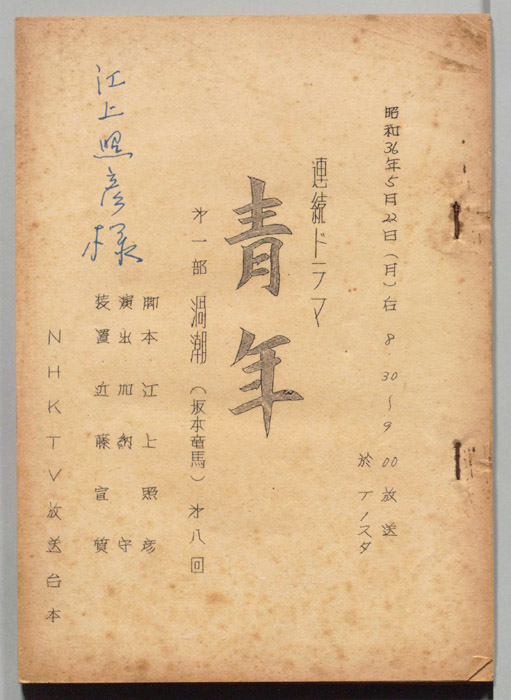 昭和36年5月22日(月)后8 30~9 00放送
於 Tノスタ
連続ドラマ
青年
才一部 渦潮(坂本竜馬)才八回
脚本 江上照彦
演出 加納守
装置 近藤宣質
NHKTV放送台本
江上照彦様